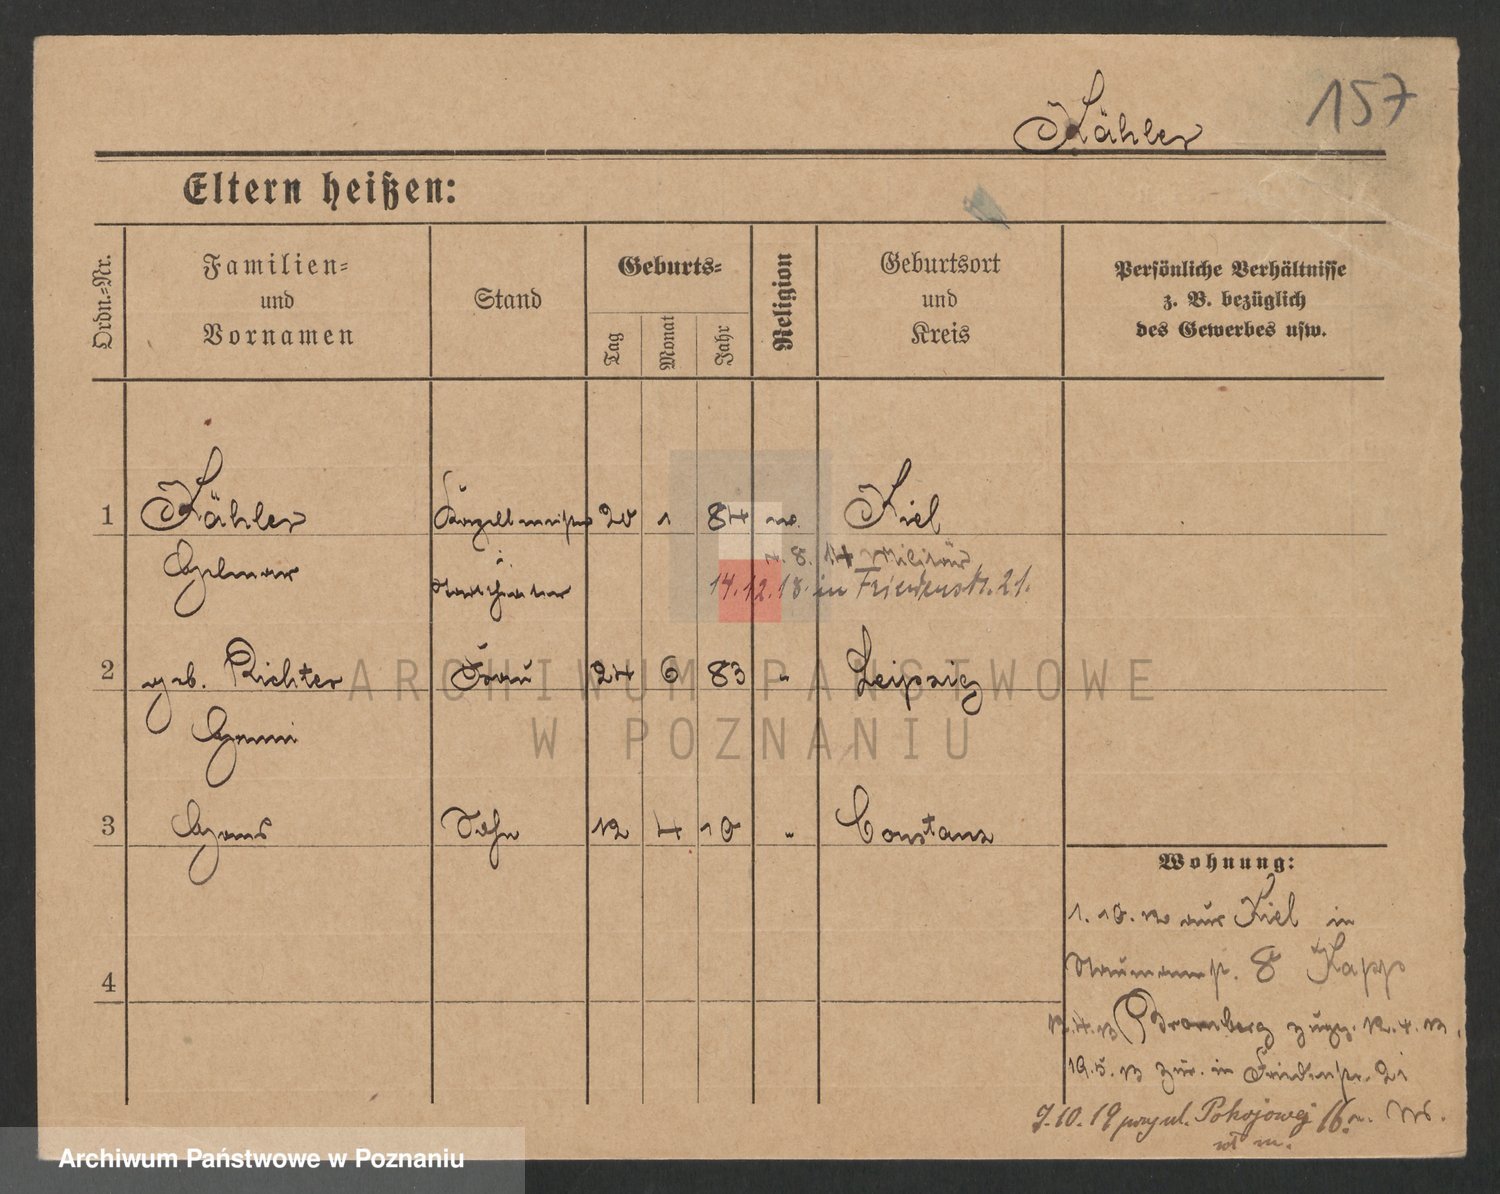 157
Kähler
Eltern heißen:
Ordn.=Nr.
Familien=
und
Vornamen
Stand
Geburts=
Tag
Monat
Jahr
Religion
Geburtsort
und
Kreis
Persönliche Verhältnisse
z. B. bezüglich
des Gewerbes usw.
1 Kähler 20 1 84 Kiel
4. 8. 14 Militär
14.12.18. in Friedenstr. 21.
2 geb. Richter Frau 24 6 83 " Leipzig
3 Hans Sohn 12 4 10 " Constanz
4
Wohnung:
1. 10. 12 aus Kiel in
Naumannstr. 8 Kapp
12.4.13 Bromberg zugz. 12. 4. 13.
19.5.13 zur. in Friedenstr. 21
7.10.19 przy ul. Pokojowej 16
ARCHIWUM PAŃSTWOWE
W POZNANIU
Archiwum Państwowe w Poznaniu